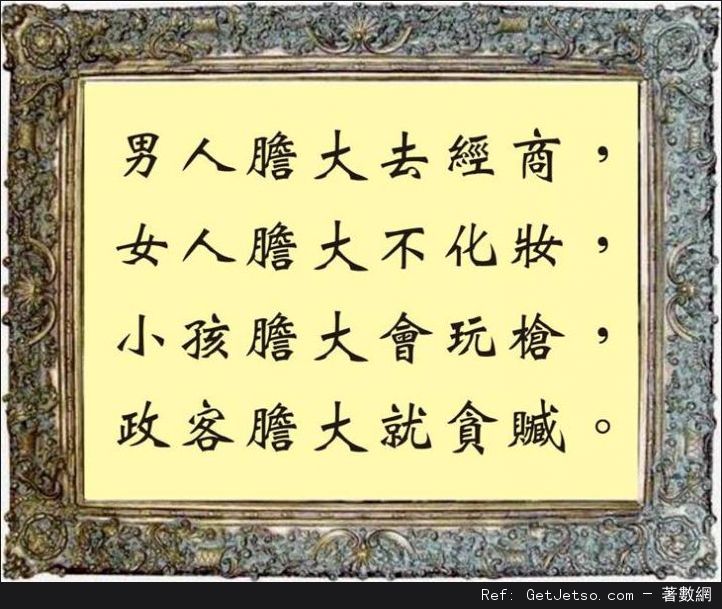 男人膽大去經商，
女人膽大不化妝，
小孩膽大會玩槍，
政客膽大就貪贓。
Ref: GetJetso.com - 著數網